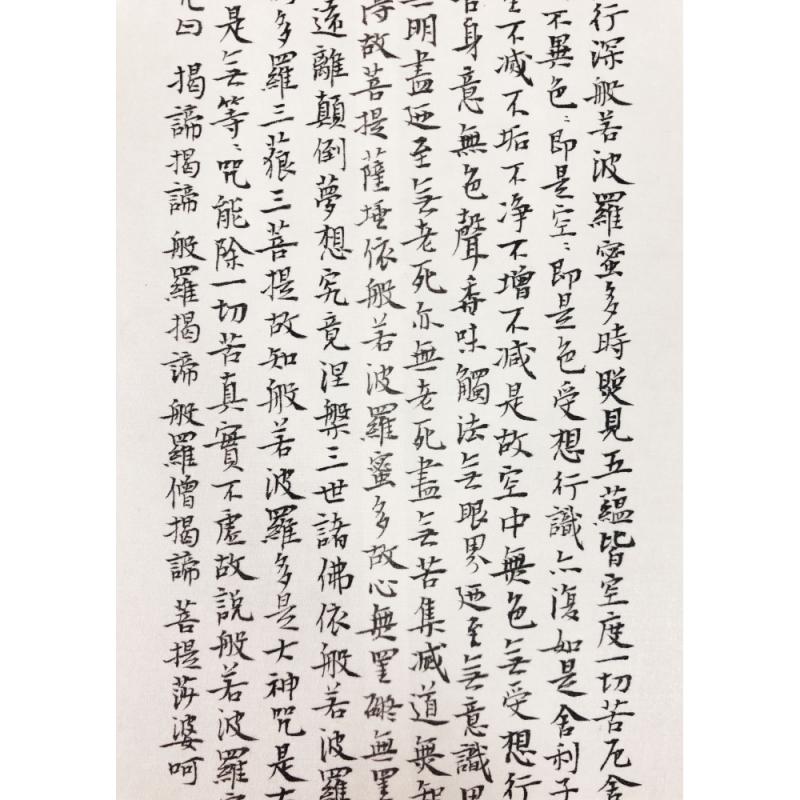 行深般若波羅蜜多時照見五蘊皆空度一切苦厄舍
不異色〻即是空〻即是色受想行識亦復如是舍利子
不减不垢不净不增不减是故空中無色无受想行
身意無色聲香味觸法无眼界廼至无意識界
明盡廼至无老死亦無老死盡无苦集减道無智
得故菩提薩埵依般若波羅蜜多故心無罣礙無罣
遠離顛倒夢想究竟涅槃三世諸佛依般若波羅
多羅三藐三菩提故知般若波羅多是大神咒是大
是无等〻咒能除一切苦真實不虛故説般若波羅
曰 揭諦揭諦 般羅揭諦 般羅僧揭諦 菩提莎婆呵